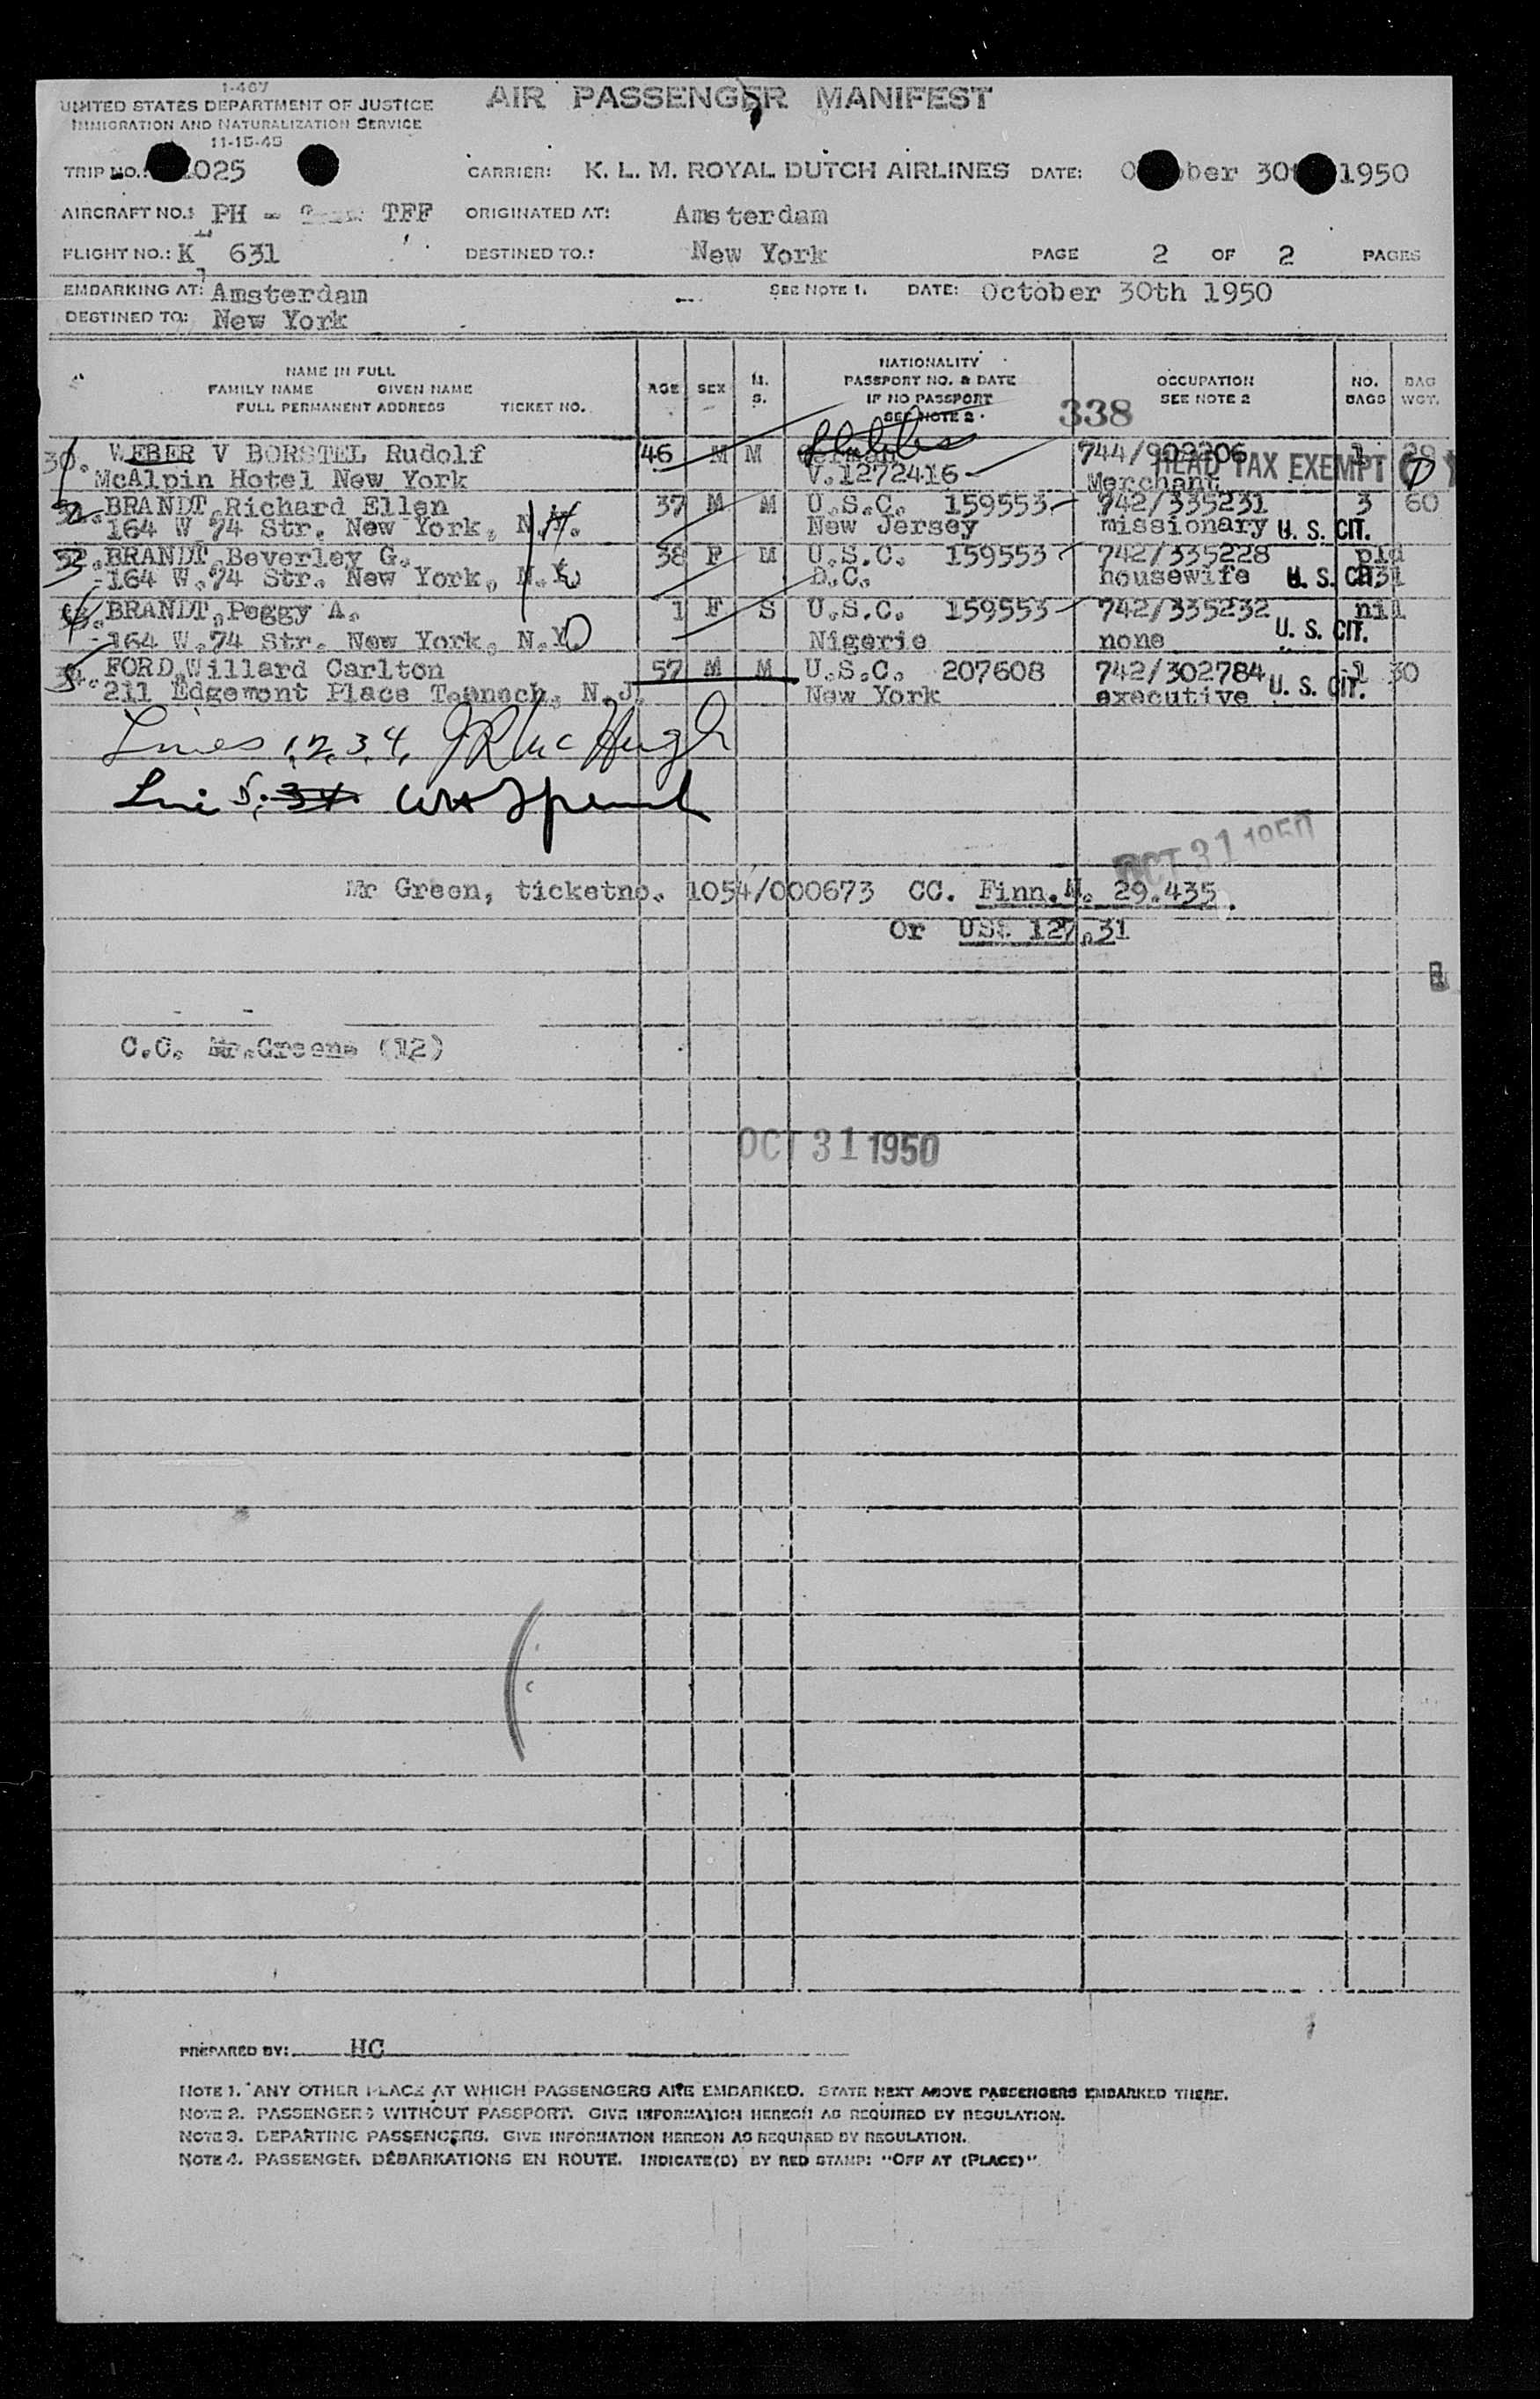 1-467
UNITED STATES DEPARTMENT OF JUSTICE
IMMIGRATION AND NATURALIZATION SERVICE
11-15-45
AIR PASSENGER MANIFEST
TRIP NO.: 1025
CARRIER: K. L. M. ROYAL DUTCH AIRLINES DATE: October 30th 1950
AIRCRAFT NO.: PH - TFF ORIGINATED AT: Amsterdam
FLIGHT NO.: K 631 DESTINED TO.: New York PAGE 2 OF 2 PAGES
EMBARKING AT: Amsterdam SEE NOTE 1. DATE: October 30th 1950
DESTINED TO: New York
NAME IN FULL
FAMILY NAME GIVEN NAME
FULL PERMANENT ADDRESS TICKET NO.
AGE SEX M. S.
NATIONALITY
PASSPORT NO. & DATE
IF NO PASSPORT
SEE NOTE 2.
OCCUPATION
SEE NOTE 2
NO. BAGS
BAG WGT.
338
30. WEBER V BORSTEL Rudolf 46 M M German 744/902206 1 28
McAlpin Hotel New York V.1272416 Merchant HEAD TAX EXEMPT
BRANDT, Richard Ellen 37 M M U.S.C. 159553 742/335231 3 60
164 W 74 Str. New York, N.Y. New Jersey missionary U. S. CIT.
BRANDT, Beverley G. 38 F M U.S.C. 159553 742/335228 pld
164 W. 74 Str. New York, N.Y. D.C. housewife U. S. CIT.
BRANDT, Peggy A. 1 F S U.S.C. 159553 742/335232 nil
164 W. 74 Str. New York, N.Y. Nigerie none U. S. CIT.
FORD, Willard Carlton 57 M M U.S.C. 207608 742/302784 1 30
211 Edgemont Place Teaneck, N.J. New York executive U. S. CIT.
Lines 1, 2, 3, 4, Mc Hugh
OCT 31 1950
Mr Green, ticketno. 1054/000673 CC. Finn.M. 29.435.
or US$ 127.31
C.C. Mr.Greene (12)
OCT 31 1950
PREPARED BY: HC
NOTE 1. ANY OTHER PLACE AT WHICH PASSENGERS ARE EMBARKED. STATE NEXT ABOVE PASSENGERS EMBARKED THERE.
NOTE 2. PASSENGERS WITHOUT PASSPORT. GIVE INFORMATION HEREON AS REQUIRED BY REGULATION.
NOTE 3. DEPARTING PASSENGERS. GIVE INFORMATION HEREON AS REQUIRED BY REGULATION.
NOTE 4. PASSENGER DEBARKATIONS EN ROUTE. INDICATE(D) BY RED STAMP: "OFF AT (PLACE)"